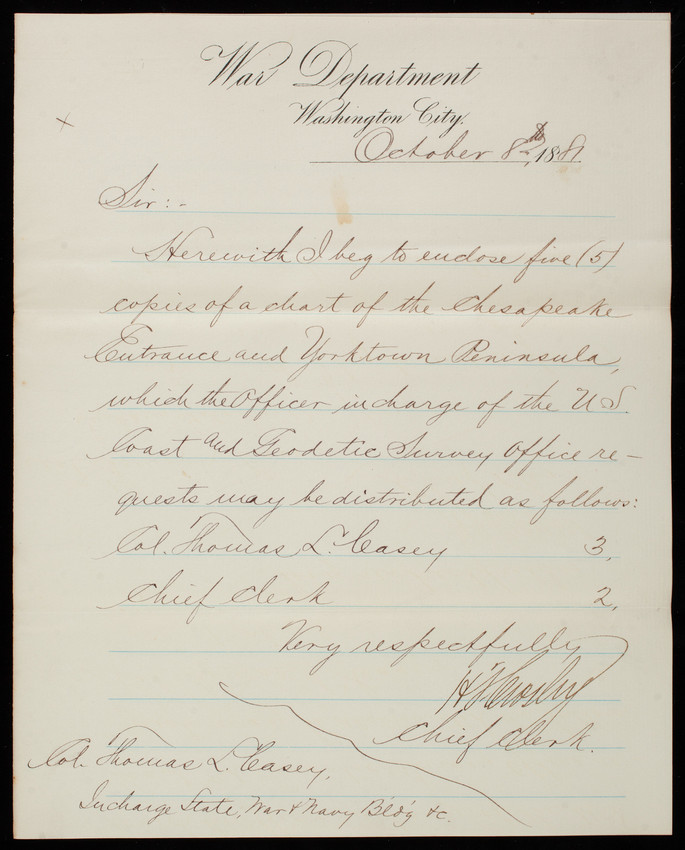 War Department
Washington City.
October 8th, 1881.
Sir:-
Herewith I beg to enclose five (5)
copies of a chart of the Chesapeake
Entrance and Yorktown Peninsula,
which the Officer in charge of the U.S.
Coast and Geodetic Survey Office re-
quests may be distributed as follows:
Col. Thomas L. Casey 3,
Chief Clerk 2,
Very respectfully
H T Crosby
Chief Clerk.
Col. Thomas L. Casey,
In charge State, War & Navy Bldg &c.